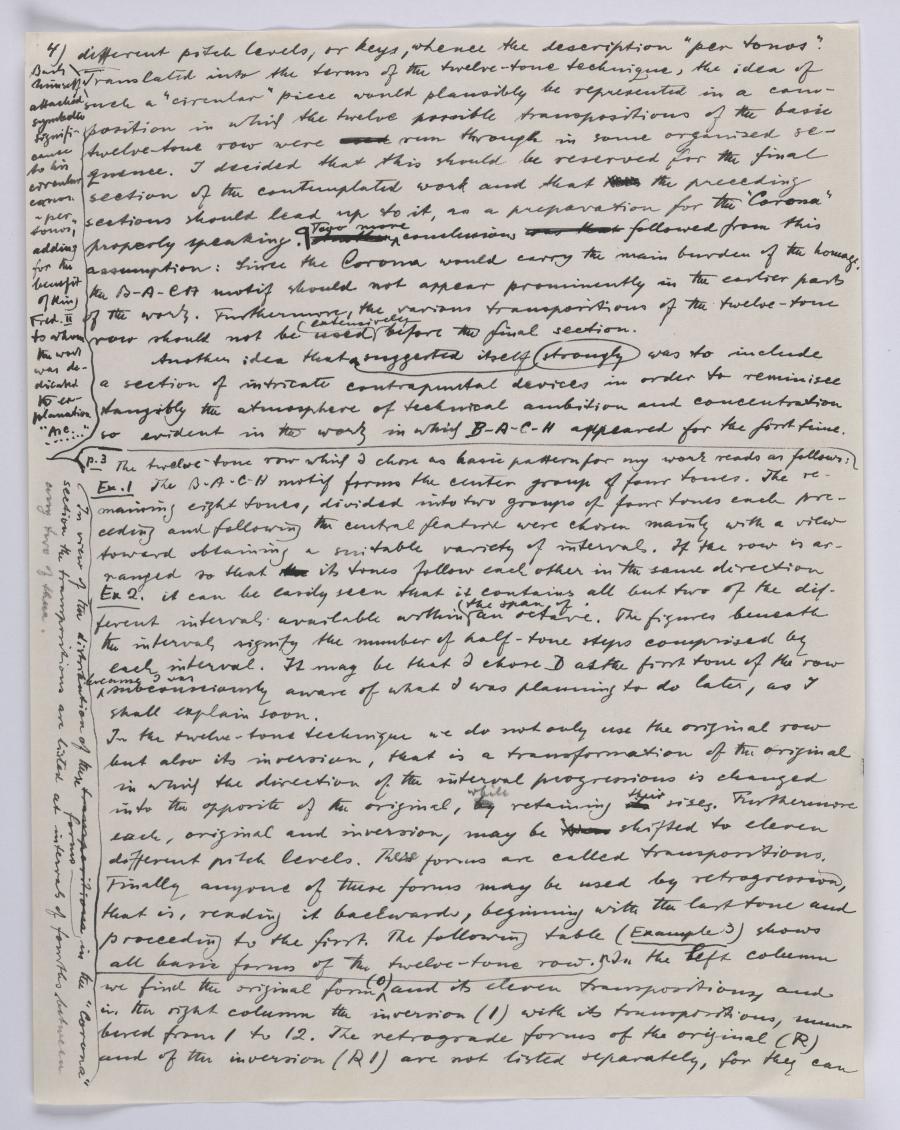 4) different pitch levels, or keys, whence the description "per tonos".
Translated into the terms of the twelve-tone technique, the idea of
such a "circular" piece would plausibly be represented in a com-
position in which the twelve possible transpositions of the basic
twelve-tone row were run through in some organized se-
quence. I decided that this should be reserved for the final
section of the contemplated work and that the preceding
sections should lead up to it, as a preparation for the "Corona"
properly speaking. ¶ Two more conclusions followed from this
assumption: Since the Corona would carry the main burden of the homage,
the B-A-C-H motif should not appear prominently in the earlier parts
of the work. Furthermore, the various transpositions of the twelve-tone
row should not be used (extensively) before the final section.
Another idea that suggested itself strongly was to include
a section of intricate contrapuntal devices in order to reminisce
tangibly the atmosphere of technical ambition and concentration
so evident in the work in which B-A-C-H appeared for the first time.
Bach
himself
attached
symbolic
signifi-
cance
to his
circular
canon
"per
tonos,"
adding
for the
benefit
of King
Fred. II
to whom
the work
was de-
dicated
the ex-
planation
"Asc....."
p.3 The twelve-tone row which I chose as basic pattern for my work reads as follows:
Ex.1 The B-A-C-H motif forms the center group of four tones. The re-
maining eight tones, divided into two groups of four tones each pre-
ceding and following the central feature were chosen mainly with a view
toward obtaining a suitable variety of intervals. If the row is ar-
ranged so that its tones follow each other in the same direction
Ex 2. it can be easily seen that it contains all but two of the dif-
ferent intervals available within (the span of) an octave. The figures beneath
the intervals signify the number of half-tone steps comprised by
each interval. It may be that I chose D as the first tone of the row
because I was subconsciously aware of what I was planning to do later, as I
shall explain soon.
In the twelve-tone technique we do not only use the original row
but also its inversion, that is a transformation of the original
in which the direction of the interval progressions is changed
into the opposite of the original, while retaining their sizes. Furthermore
each, original and inversion, may be shifted to eleven
different pitch levels. These forms are called transpositions.
Finally anyone of these forms may be used by retrogression,
that is, reading it backwards, beginning with the last tone and
proceeding to the first. The following table (Example 3) shows
all basic forms of the twelve-tone row. ¶ In the left column
we find the original form (O) and its eleven transpositions, and
in the right column the inversion (I) with its transpositions, num-
bered from 1 to 12. The retrograde forms of the original (R)
and of the inversion (RI) are not listed separately, for they can
(In view of the distribution of these transpositions forms in the "Corona"
section the transpositions are listed at intervals of fourths between
any two of them.